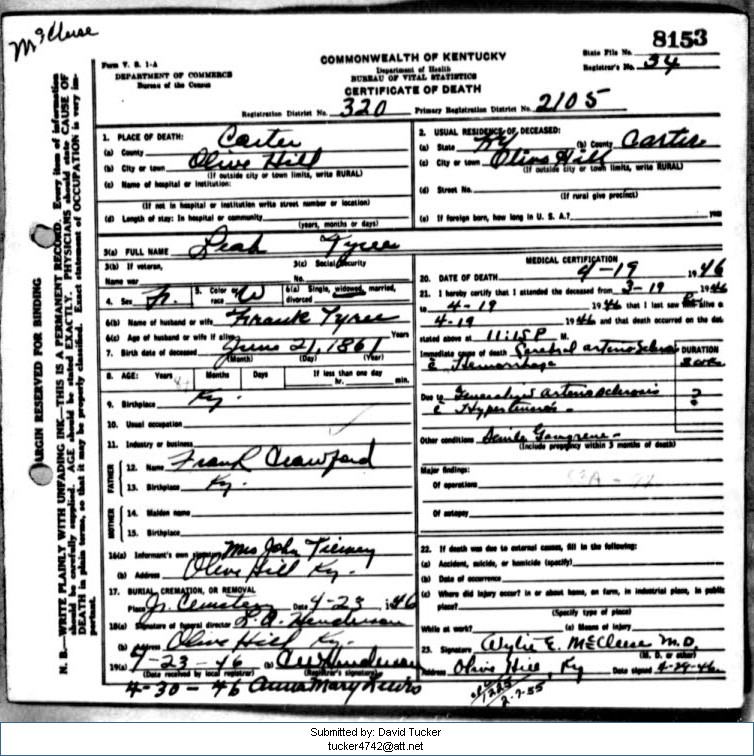 McCleese
8153
State File No.
Registrar's No. 34
Form V. S. 1-A
DEPARTMENT OF COMMERCE
Bureau of the Census
COMMONWEALTH OF KENTUCKY
Department of Health
BUREAU OF VITAL STATISTICS
CERTIFICATE OF DEATH
Registration District No. 320 Primary Registration District No. 2105
MARGIN RESERVED FOR BINDING
N. B.—WRITE PLAINLY WITH UNFADING INK—THIS IS A PERMANENT RECORD. Every item of information
should be carefully supplied. AGE should be stated EXACTLY. PHYSICIANS should state CAUSE OF
DEATH in plain terms, so that it may be properly classified. Exact statement of OCCUPATION is very im-
portant.
1. PLACE OF DEATH:
(a) County Carter
(b) City or town Olive Hill
(If outside city or town limits, write RURAL)
(c) Name of hospital or institution:
(If not in hospital or institution write street number or location)
(d) Length of stay: In hospital or community
(years, months or days)
2. USUAL RESIDENCE OF DECEASED:
(a) State Ky (b) County Carter
(c) City or town Olive Hill
(If outside city or town limits, write RURAL)
(d) Street No.
(If rural give precinct)
(e) If foreign born, how long in U. S. A.? years
3(a) FULL NAME Leah Tyree
3(b) If veteran,
Name war
3(c) Social Security
No.
4. Sex Fe. 5. Color or race W 6(a) Single, widowed, married, divorced
6(b) Name of husband or wife Frank Tyree
6(c) Age of husband or wife if alive Years
7. Birth date of deceased June 21, 1861
(Month) (Day) (Year)
8. AGE: Years 84 Months Days If less than one day
hr. min.
9. Birthplace Ky.
10. Usual occupation
11. Industry or business
FATHER
12. Name Frank Crawford
13. Birthplace Ky.
MOTHER
14. Maiden name
15. Birthplace
16(a) Informant's own signature Mrs John Tierney
(b) Address Olive Hill Ky.
17. BURIAL, CREMATION, OR REMOVAL
Place Jr. Cemetery Date 4-23 1946
18(a) Signature of funeral director L.A. Henderson
(b) Address Olive Hill Ky.
19(a) 4-23-46 (b) Henderson
(Date received by local registrar) (Registrar's signature)
4-30-46 Anna Mary Lewis
MEDICAL CERTIFICATION
20. DATE OF DEATH 4-19 1946
21. I hereby certify that I attended the deceased from 3-19 1946
to 4-19 1946 that I last saw alive on
4-19 1946 and that death occurred on the date
stated above at 11:15P M.
Immediate cause of death Cerebral arteriosclerosis
c Hemorrhage
DURATION
Due to Generalized arteriosclerosis
c Hypertension - ?
Other conditions Senile Gangrene -
(Include pregnancy within 3 months of death)
Major findings:
Of operations
Of autopsy
22. If death was due to external causes, fill in the following:
(a) Accident, suicide, or homicide (specify)
(b) Date of occurrence
(c) Where did injury occur? in or about home, on farm, in industrial place, in public
place?
(Specify type of place)
While at work? (e) Means of injury
23. Signature Wylie E. McCleese M.D.
(M. D. or other)
Address Olive Hill, Ky Date signed 4-29-46
2-7-55
Submitted by: David Tucker
tucker4742@att.net